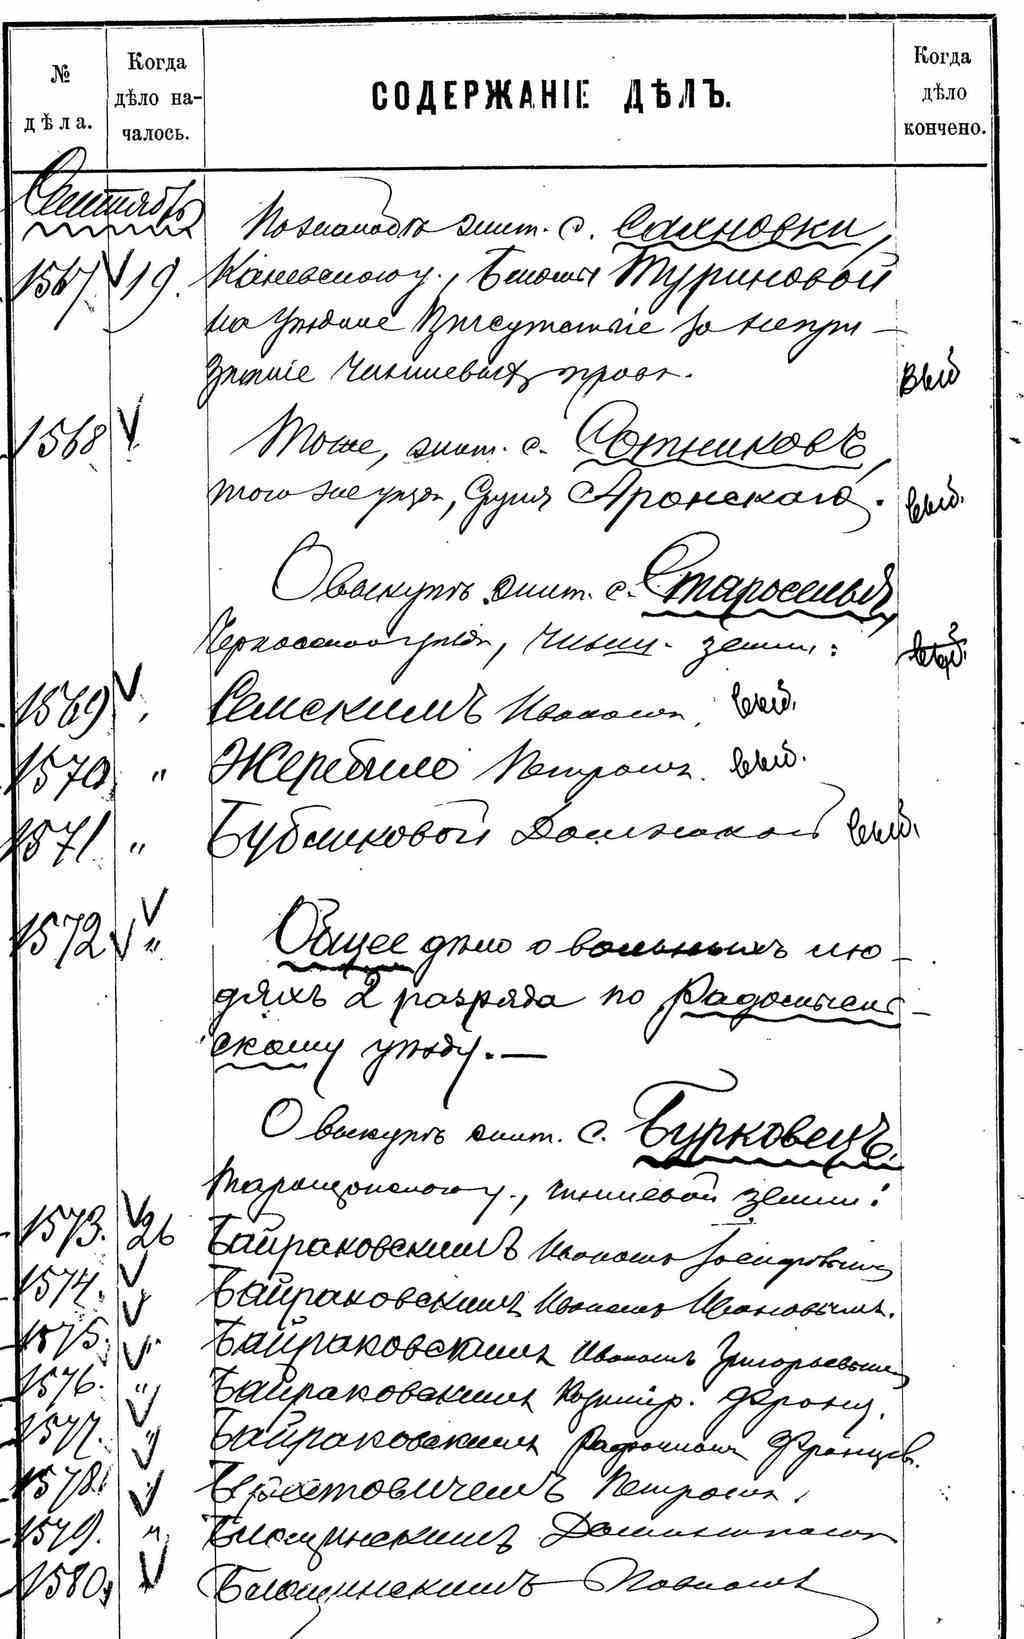 № дѣла.
Когда дѣло началось.
СОДЕРЖАНІЕ ДѢЛЪ.
Когда дѣло кончено.
Сентябрь
По жалобѣ жит. с. Сахновки,
1567 19. Каневскаго у., Туриновой
на Уѣздное Присутствіе за непри-
знаніе чиншевыхъ правъ. выб
1568 Тоже, жит. с. Сотниковъ,
того же уѣзда, Аронскаго. выб.
О выкупѣ жит. с. Староселья,
Черкасскаго уѣзда, чинш. земли:
1569 Семскимъ Иваномъ, выб.
1570 " Жеребило Петромъ. выб.
1571 " Бубликовой выб.
1572 " Общее дѣло о вольныхъ лю-
дяхъ 2 разряда по Радомысль-
скому уѣзду.—
О выкупѣ жит. с. Бурковецъ,
Таращанскаго у., чиншевой земли:
1573. 26 Байраковскимъ Иваномъ
1574. Байраковскимъ Иваномъ Ивановымъ.
1575. " Байраковскимъ Иваномъ Григорьевымъ
1576. " Байраковскимъ Казимір. Франц.
1577. " Байраковскимъ Францев.
1578. " Петромъ.
1579. " Доминикомъ
1580. Блощинскимъ Павломъ